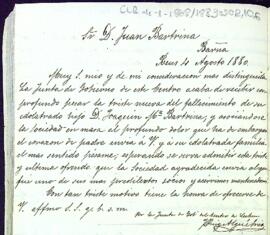 Sr. D. Juan Bartrina
Barña
Reus 4 Agosto 1880.
Muy S. mio y de mi consideracion mas distinguida
La Junta de Gobierno de este Centro acaba de recibir con
profundo pesar la triste nueva del fallecimiento de su
idolatrado hijo D. Joaquin Mª Bartrina, y asociandose
la Sociedad en masa al profundo dolor que ha de embargar
el corazon de padre envia á V. y á su idolatrada familia
el mas sentido pésame, esperando se sirva admitir este triste
y ultima ofrenda que la Sociedad agradecida envia al que
fué uno de sus mas predilectos socios y
Con tan triste motivo tiene la honra de ofrecerse de
V. affmo S. S. q. b. s. m.
Por la Junta de Gob. del Centro de Lectura